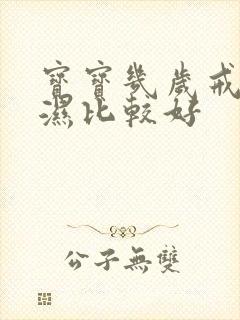 寶寶幾歲戒
濕比較好
公子無雙